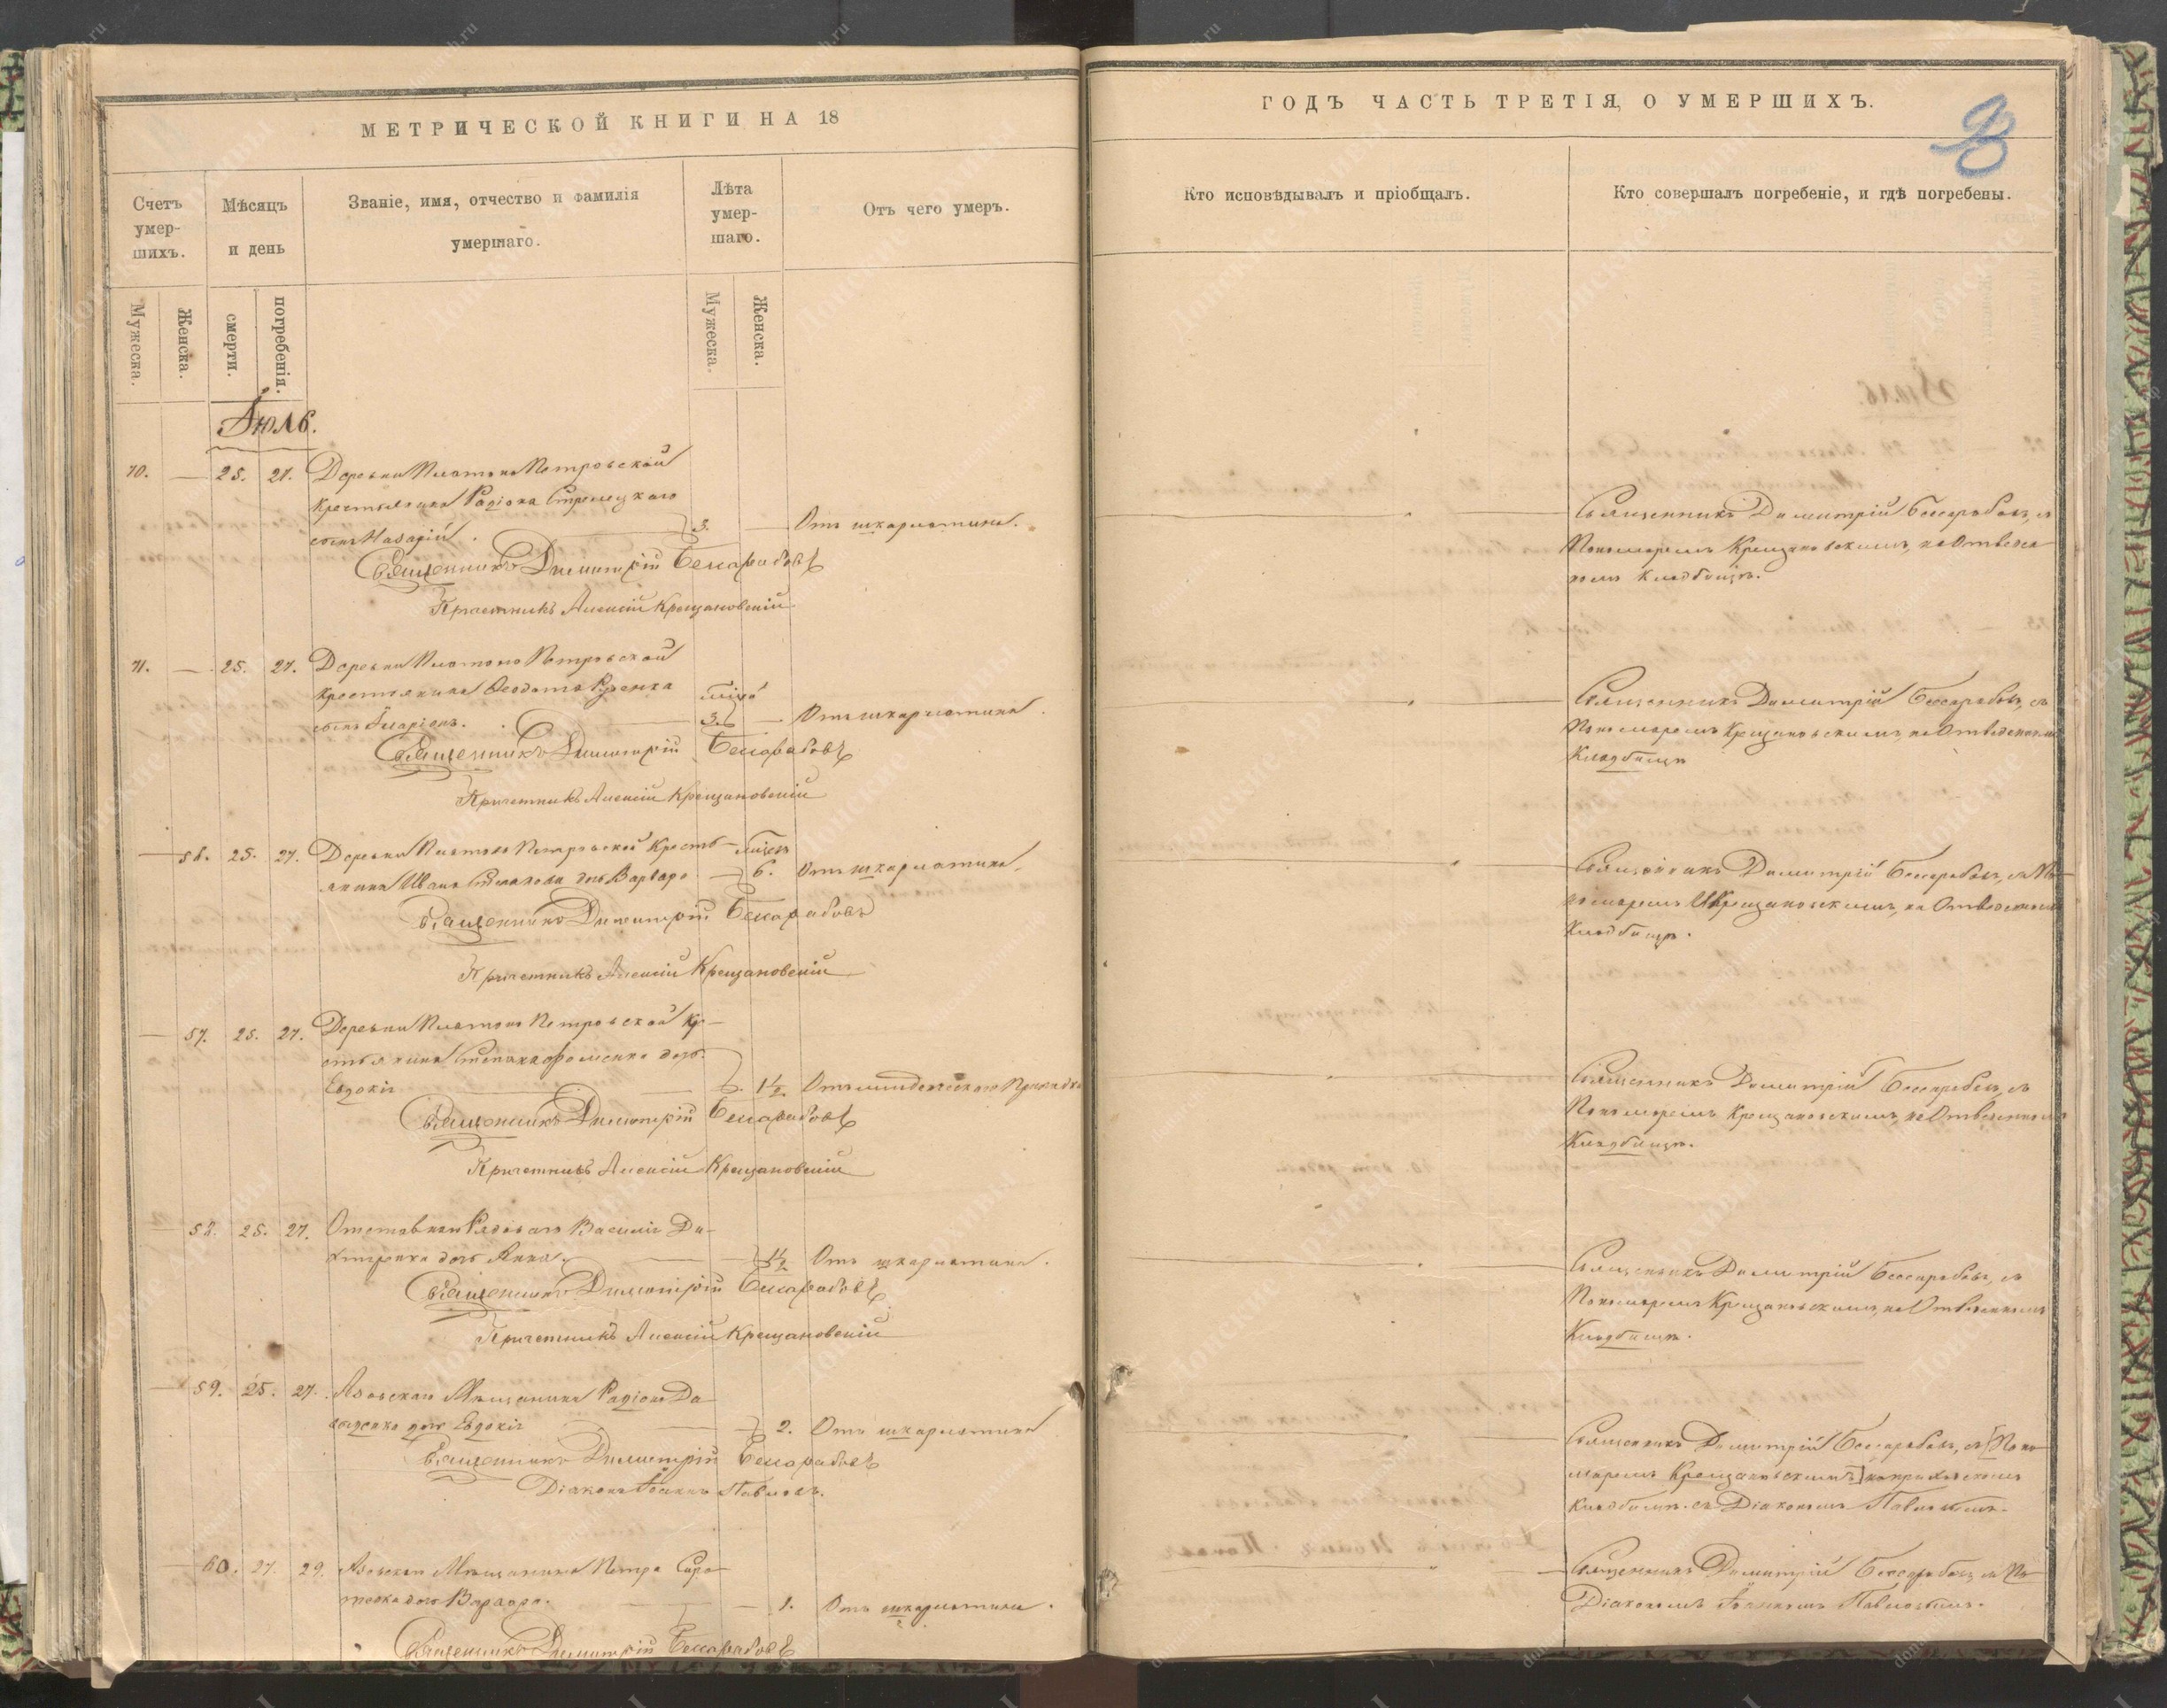 МЕТРИЧЕСКОЙ КНИГИ НА 18
Счетъ умершихъ.
Мѣсяцъ и день
Званіе, имя, отчество и фамилія умершаго.
Лѣта умершаго.
Отъ чего умеръ.
Мужеска.
Женска.
смерти.
погребенія.
Мужеска.
Женска.
Іюль.
70. — 25. 27. Деревни Платоно Петровской
крестьянина Родіона Стрелецкаго
сынъ Назарій. 3. — Отъ шкарлатина.
Священникъ Димитрій Бессарабовъ
Причетникъ Алексій Крещановскій
71. — 25. 27. Деревни Платоно Петровской
крестьянина Ѳеодота Руденка
сынъ Иларіонъ. 3. — Отъ шкарлатина.
Священникъ Димитрій Бессарабовъ
Причетникъ Алексій Крещановскій
— 56. 25. 27. Деревни Платоно Петровской Кресть-
янина Ивана дочь Варвара — 6. Отъ шкарлатина.
Священникъ Димитрій Бессарабовъ
Причетникъ Алексій Крещановскій
— 57. 25. 27. Деревни Платоно Петровской Кре-
стьянина Степана Фоменка дочь
Евдокія — 1½ Отъ младенческаго Припадка
Священникъ Димитрій Бессарабовъ
Причетникъ Алексій Крещановскій
— 58. 25. 27. Отставнаго Рядоваго Василія Дми-
тренка дочь Анна. — 1½ Отъ шкарлатина.
Священникъ Димитрій Бессарабовъ
Причетникъ Алексій Крещановскій
— 59. 25. 27. Азовскаго Мѣщанина Родіона Да-
выденка дочь Евдокія — 2. Отъ шкарлатина
Священникъ Димитрій Бессарабовъ
Діаконъ Іоаннъ Павловъ.
— 60. 27. 29. Азовскаго Мѣщанина Петра Сиро-
тенка дочь Варвара. — 1. Отъ шкарлатина.
Священникъ Димитрій Бессарабовъ
ГОДЪ ЧАСТЬ ТРЕТІЯ, О УМЕРШИХЪ.
Кто исповѣдывалъ и пріобщалъ.
Кто совершалъ погребеніе, и гдѣ погребены.
Священникъ Димитрій Бессарабовъ, съ
Пономаремъ Крещановскимъ, на Отведен-
номъ кладбищѣ.
Священникъ Димитрій Бессарабовъ, съ
Пономаремъ Крещановскимъ, на Отведенномъ
Кладбищѣ
Священникъ Димитрій Бессарабовъ, съ По-
номаремъ Крещановскимъ, на Отведенномъ
Кладбищѣ.
Священникъ Димитрій Бессарабовъ, съ
Пономаремъ Крещановскимъ, на Отведенномъ
Кладбищѣ.
Священникъ Димитрій Бессарабовъ, съ
Пономаремъ Крещановскимъ, на Отведенномъ
Кладбищѣ.
Священникъ Димитрій Бессарабовъ, съ [Поно-
маремъ Крещановскимъ] на приходскомъ
кладбищѣ. съ Діакономъ Павловымъ.
Священникъ Димитрій Бессарабовъ, съ
Діакономъ Іоанномъ Павловымъ.